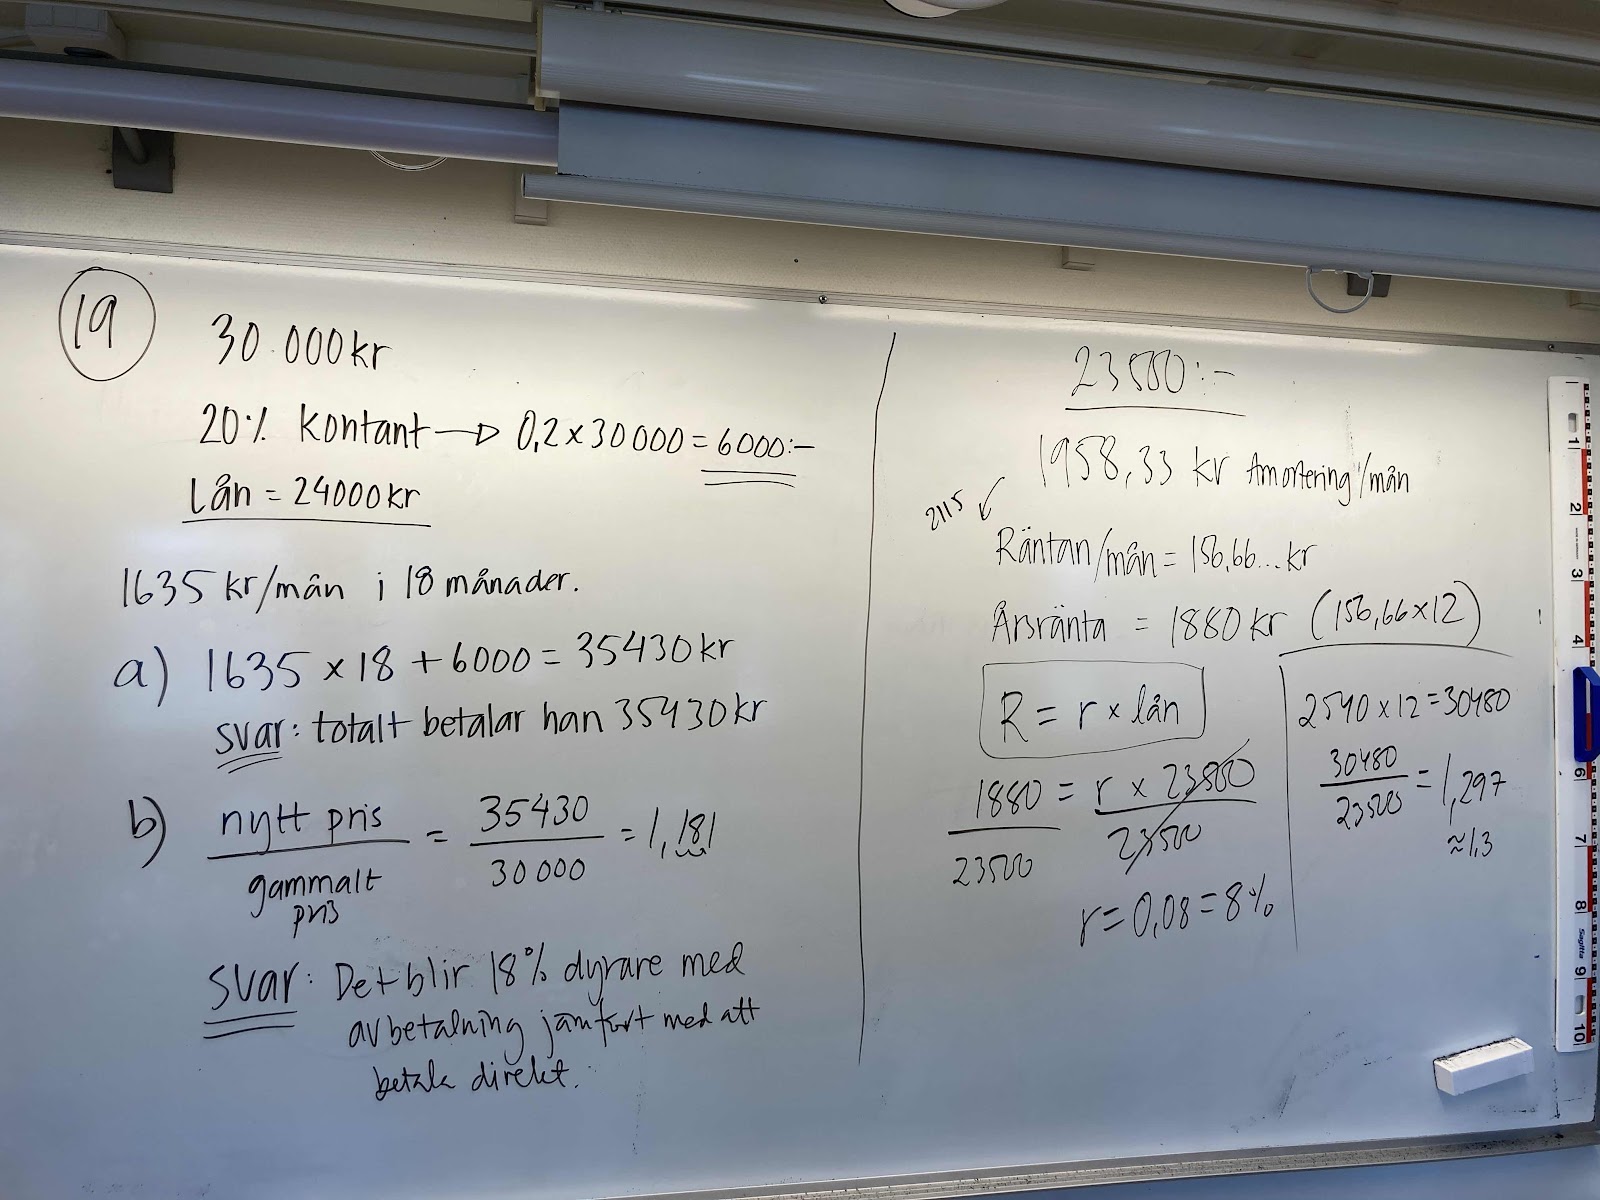 19
30 000 kr
20% kontant → 0,2 x 30000 = 6000:-
Lån = 24000 kr
1635 kr/mån i 18 månader.
a) 1635 x 18 + 6000 = 35430 kr
svar: totalt betalar han 35430 kr
b) nytt pris / gammalt pris = 35430 / 30 000 = 1,181
svar: Det blir 18% dyrare med
avbetalning jämfört med att
betala direkt.
23500:-
1958,33 kr Amortering/mån
2115
Räntan/mån = 156,66... kr
Årsränta = 1880 kr (156,66 x 12)
R = r x lån
1880 / 23500 = r x 23500 / 23500
r = 0,08 = 8%
2540 x 12 = 30480
30480 / 23500 = 1,297
≈ 1,3
1
2
3
4
6
7
8
Sagitta
9
10